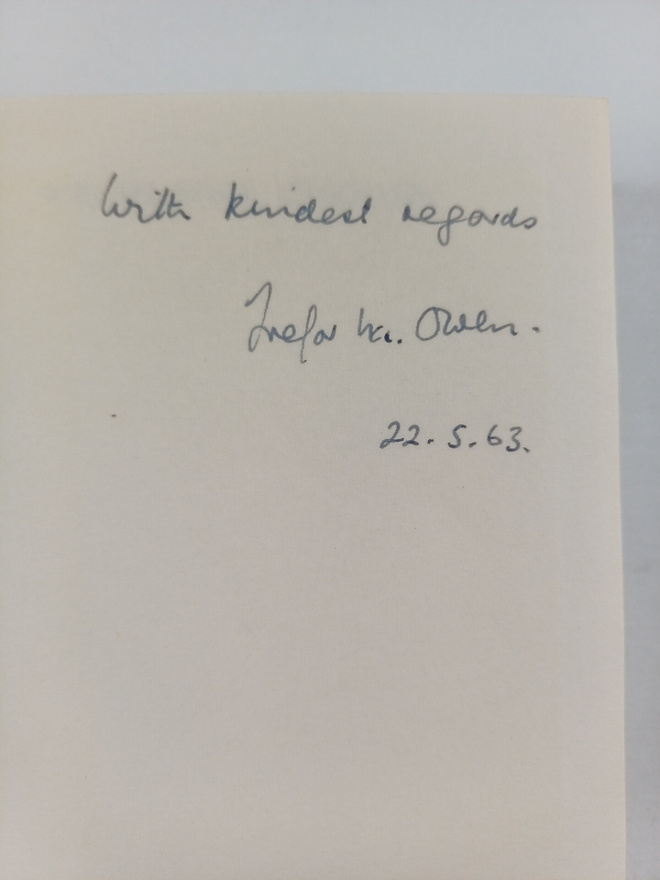 With kindest regards
Trefor M. Owen.
22.5.63.